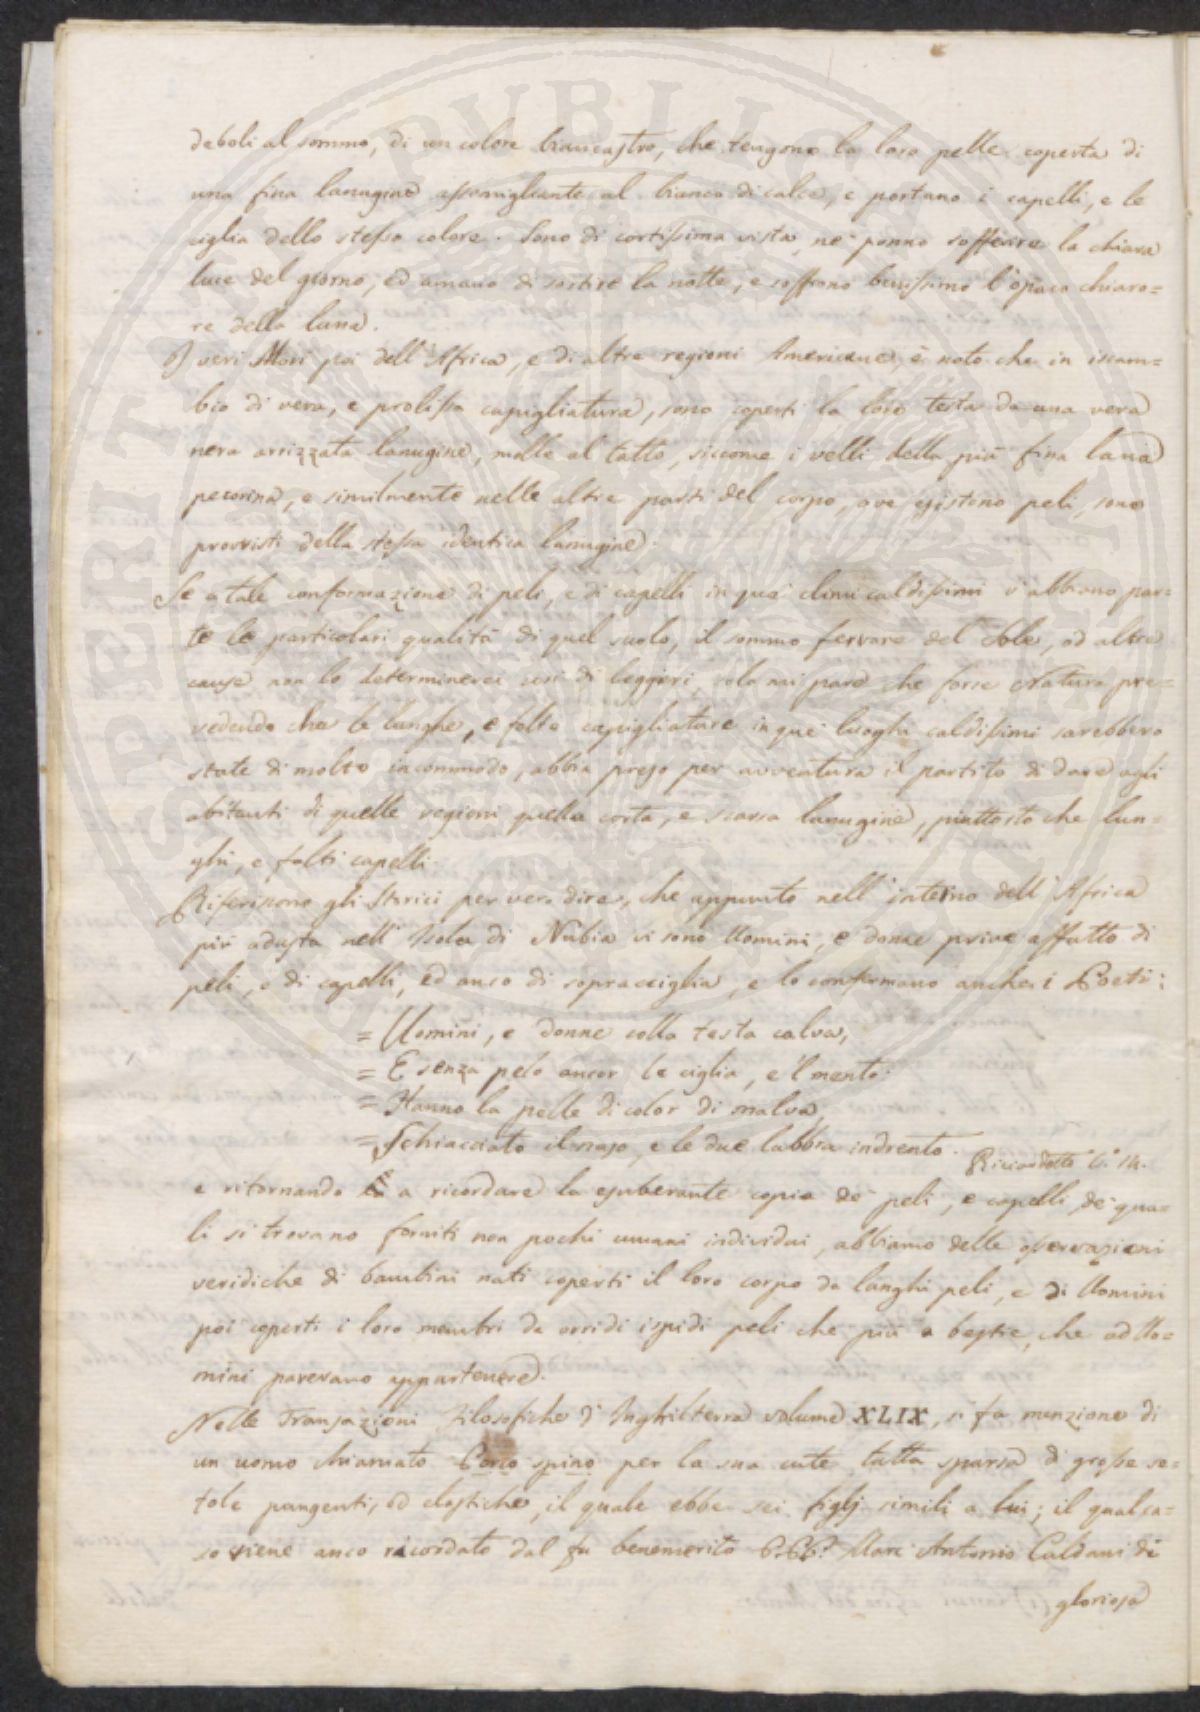 deboli al sommo, di un colore biancastro, che tengono la loro pelle coperta di
una fina lanugine assomigliante al bianco di calce, e portano i capelli, e le
ciglia dello stesso colore. Sono di cortissima vista, nè ponno sofferire la chiara
luce del giorno, ed amano di sortire la notte, e soffrono benissimo l'opaco chiaro=
re della luna.
veri Mori poi dell'Africa, e di altre regioni Americane, è noto che in iscam=
bio di vera, e prolissa capigliatura, sono coperti la loro testa da una vera
nera arrizzata lanugine, molle al tatto, siccome i velli della più fina lana
pecorina, e similmente nelle altre parti del corpo, ove esistono peli, sono
provvisti della stessa identica lanugine.
Se a tale conformazione di peli, e di capelli in que' climi caldissimi v'abbiano par=
te le particolari qualità di quel suolo, il sommo fervore del Sole, od altre
cause non lo determinerei così di leggieri, solo mi pare che forse Natura pre=
vedendo che le lunghe, e folte capigliature in que' luoghi caldissimi sarebbero
state di molto incommodo, abbia preso per avventura il partito di dare agli
abitanti di quelle regioni quella corta, e scarsa lanugine, piuttosto che lun=
ghi, e folti capelli.
Riferiscono gli Storici per vero dire, che appunto nell'interno dell'Africa
più adusta nell'Isola di Nubia vi sono Uomini, e donne prive affatto di
peli, e di capelli, ed anco di sopracciglia, e lo confermano anche i Poeti:
= Uomini, e donne colla testa calva,
= E senza pelo ancor le ciglia, e 'l mento.
= Hanno la pelle di color di malva,
= Schiacciato il naso, e le due labbra indrento.
Ricciardetto C.° 14.
e ritornando a ricordare la esuberante copia de' peli, e capelli, de' qua=
li si trovano forniti non pochi umani individui, abbiamo delle osservazioni
veridiche di bambini nati coperti il loro corpo da lunghi peli, e di Uomini
poi coperti i loro membri da orridi ispidi peli che più a bestie, che ad Uo=
mini parevano appartenere.
Nelle Transazioni Filosofiche d'Inghilterra volume XLIX, si fa menzione di
un uomo chiamato Porco spino per la sua cute tutta sparsa di grosse se=
tole pungenti, ed elastiche, il quale ebbe sei figlj simili a lui; il qual ca=
so viene anco ricordato dal fu benemerito Marc'Antonio Caldani di
gloriosa